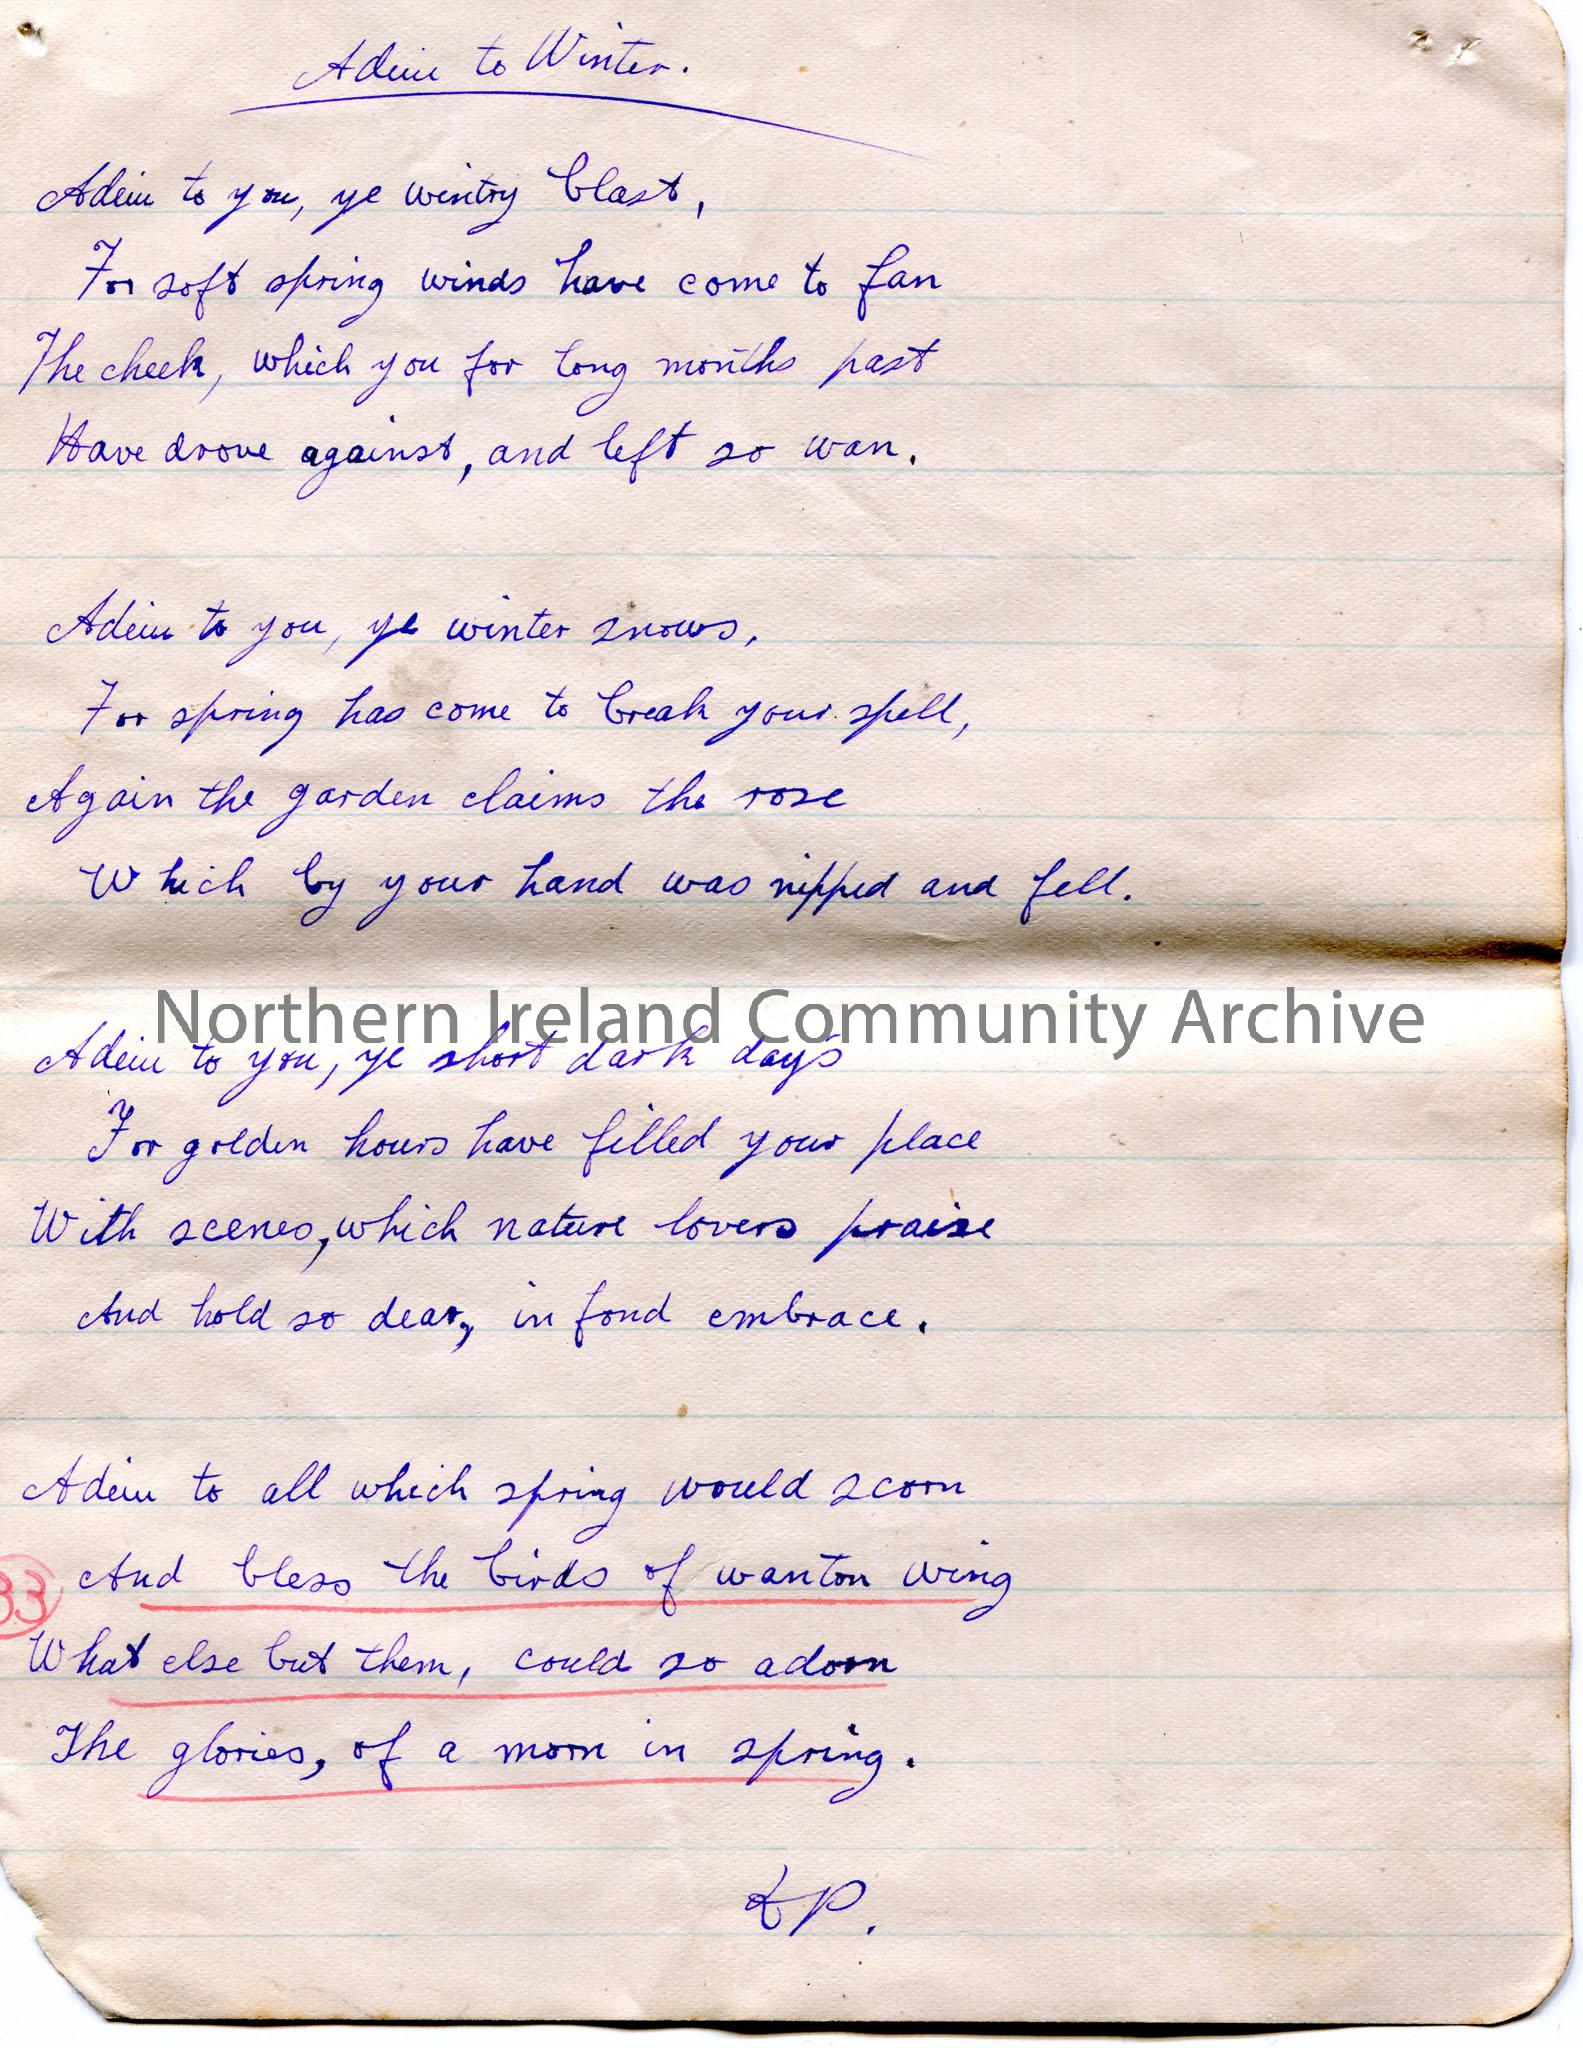 Adieu to Winter.
Adieu to you, ye wintry blast,
For soft spring winds have come to fan
The cheek, which you for long months past
Have drove against, and left so wan.
Adieu to you, ye winter snows,
For spring has come to break your spell,
Again the garden claims the rose
Which by your hand was nipped and fell.
Northern Ireland Community Archive
Adieu to you, ye short dark days
For golden hours have filled your place
With scenes, which nature lovers praise
And hold so dear, in fond embrace.
Adieu to all which spring would scorn
And bless the birds of wanton wing
33
What else but them, could so adorn
The glories, of a morn in spring.
P.